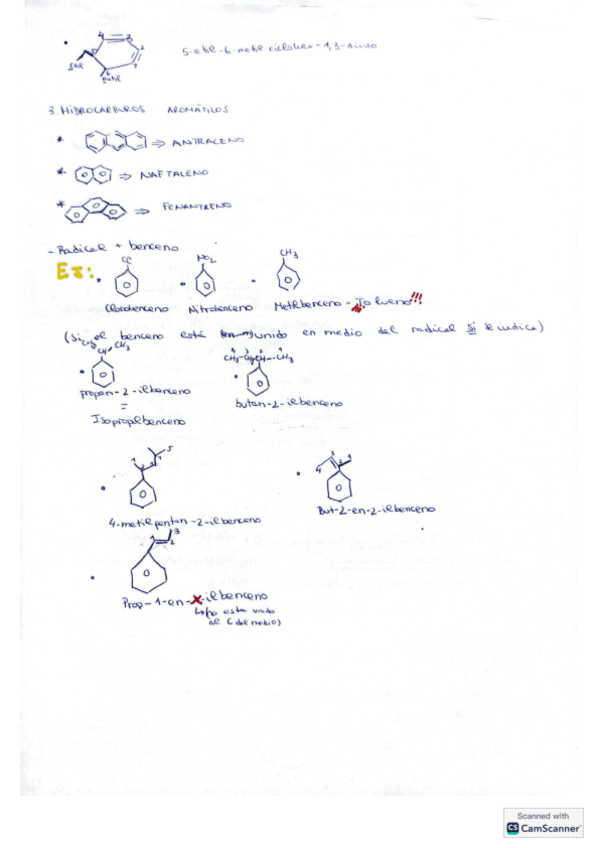 4 3
2
1
6
Etil
metil
5-etil-6-metil ciclohex-1,3-dieno
3. HIDROCARBUROS AROMÁTICOS
* ⇒ ANTRACENO
* ⇒ NAFTALENO
* ⇒ FENANTRENO
- Radical + benceno
EJ:
Cl
NO2
CH3
Clorobenceno Nitrobenceno Metilbenceno = Tolueno!!!
(Si el benceno está unido en medio del radical si se indica)
CH3 CH CH3
CH3-CH2CH-CH3
propan-2-ilbenceno
=
Isopropilbenceno
butan-2-ilbenceno
4-metilpentan-2-ilbenceno
But-2-en-2-ilbenceno
Prop-1-en-ilbenceno
↳No está unido
al C del medio)
Scanned with
CS CamScanner